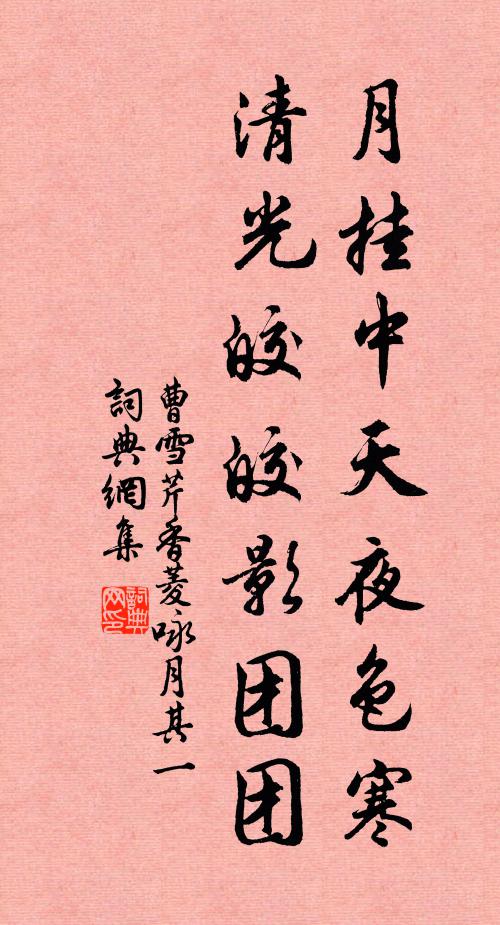 月挂中天夜色寒
清光皎皎影团团
曹雪芹香菱咏月其一
詞典網集
詞典
网印